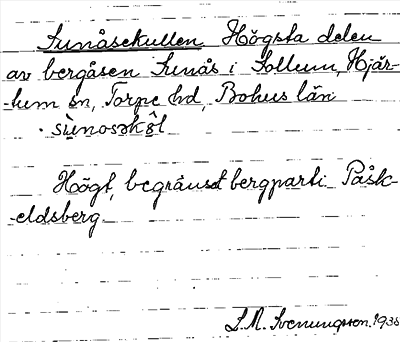 Sunåsekullen Högsta delen
av bergåsen Sunås i Sollum, Hjär-
-tum sn, Torpe hd, Bohus län
· sùnosəkâl
Högt, begränsat bergparti. Påsk-
-eldsberg
S. M. Svenungsson. 1938